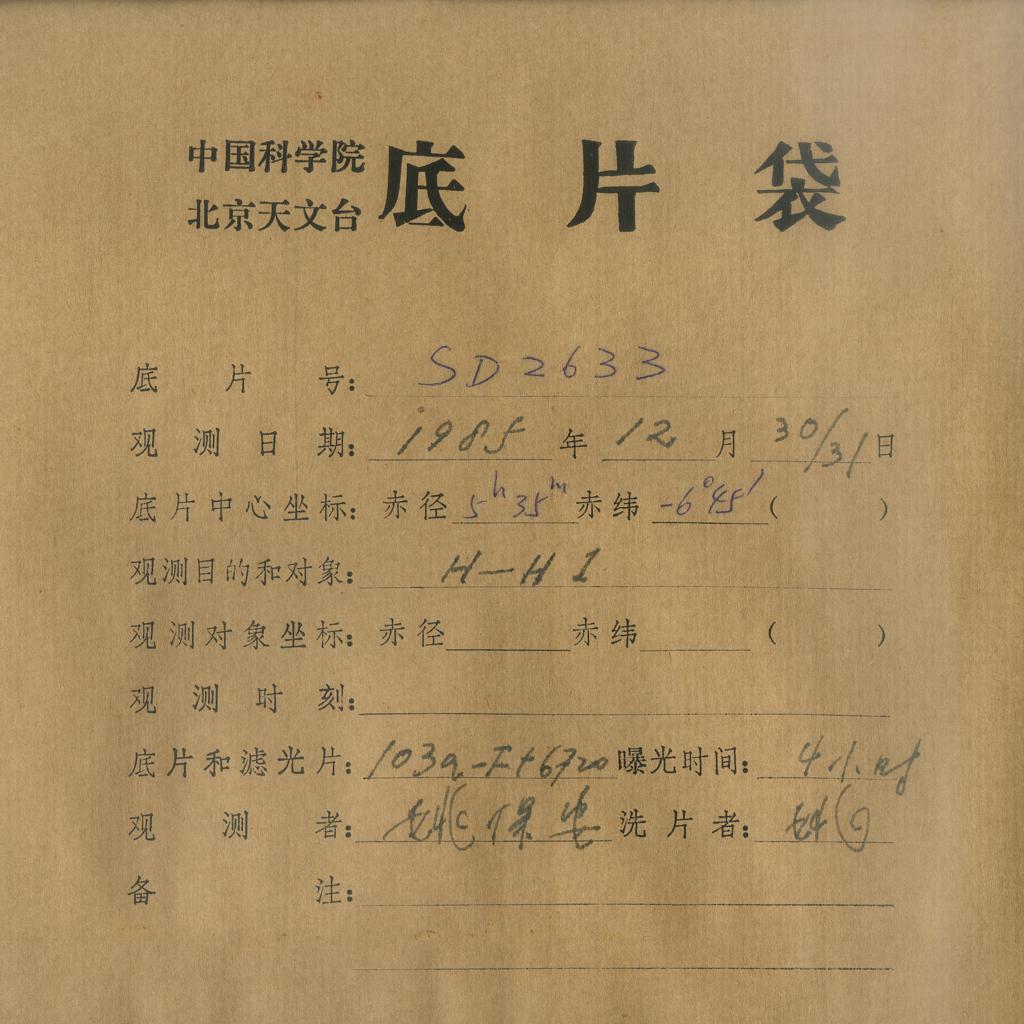 中国科学院
北京天文台
底片袋
底片号: SD2633
观测日期: 1985年12月30/31日
底片中心坐标: 赤径 5h35m 赤纬 -6°45′ ( )
观测目的和对象: H-H 1
观测对象坐标: 赤径 赤纬 ( )
观测时刻:
底片和滤光片: 103a-F+6720 曝光时间: 4小时
观测者: 姚保安 洗片者: 姚
备注: